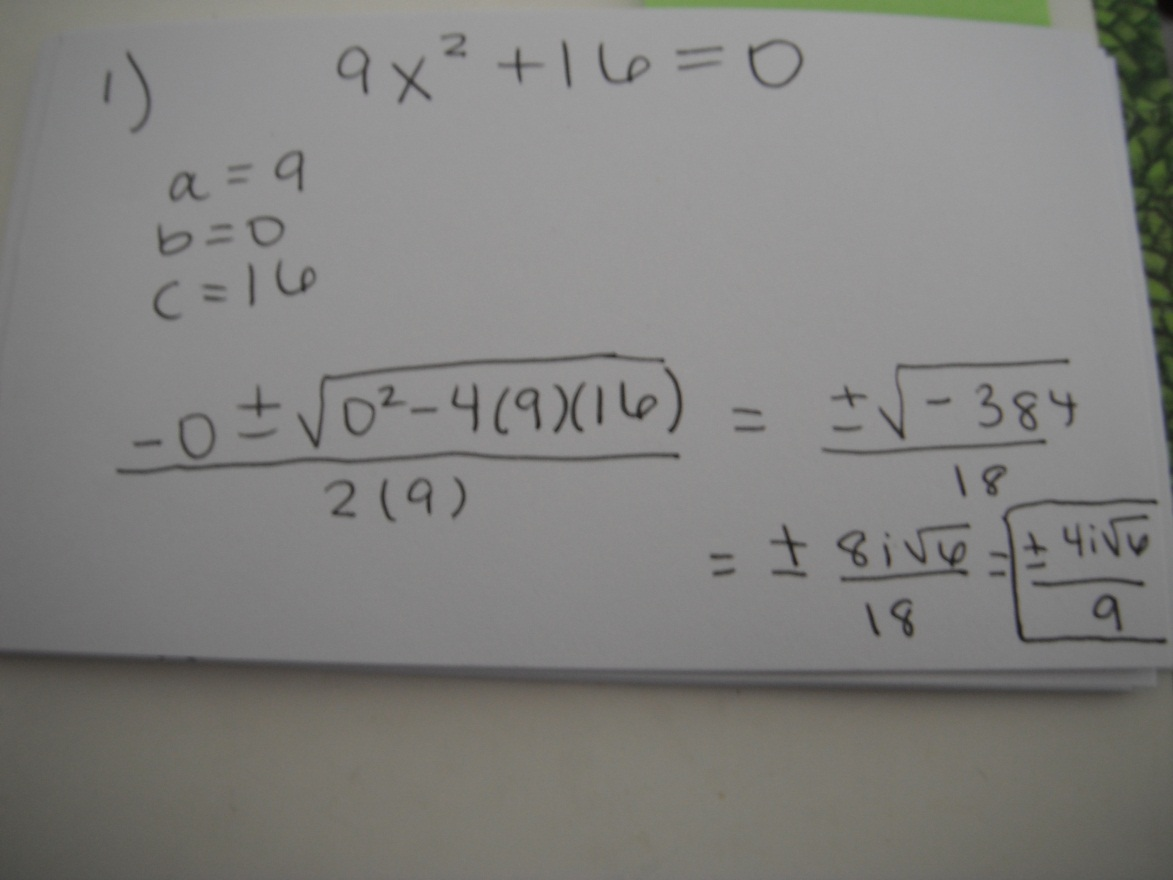 1) 9x² + 16 = 0
a = 9
b = 0
c = 16
-0 ± √(0² - 4(9)(16)) / 2(9) = ± √(-384) / 18
= ± 8i√6 / 18 = ± 4i√6 / 9